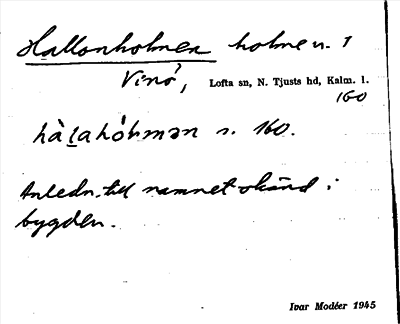 Hallonholmen holme n. 1
Vinö,
Lofta sn, N. Tjusts hd, Kalm. l.
160
hàlahólmən s. 160.
Anledn. till namnet okänd i
bygden.
Ivar Modéer 1945